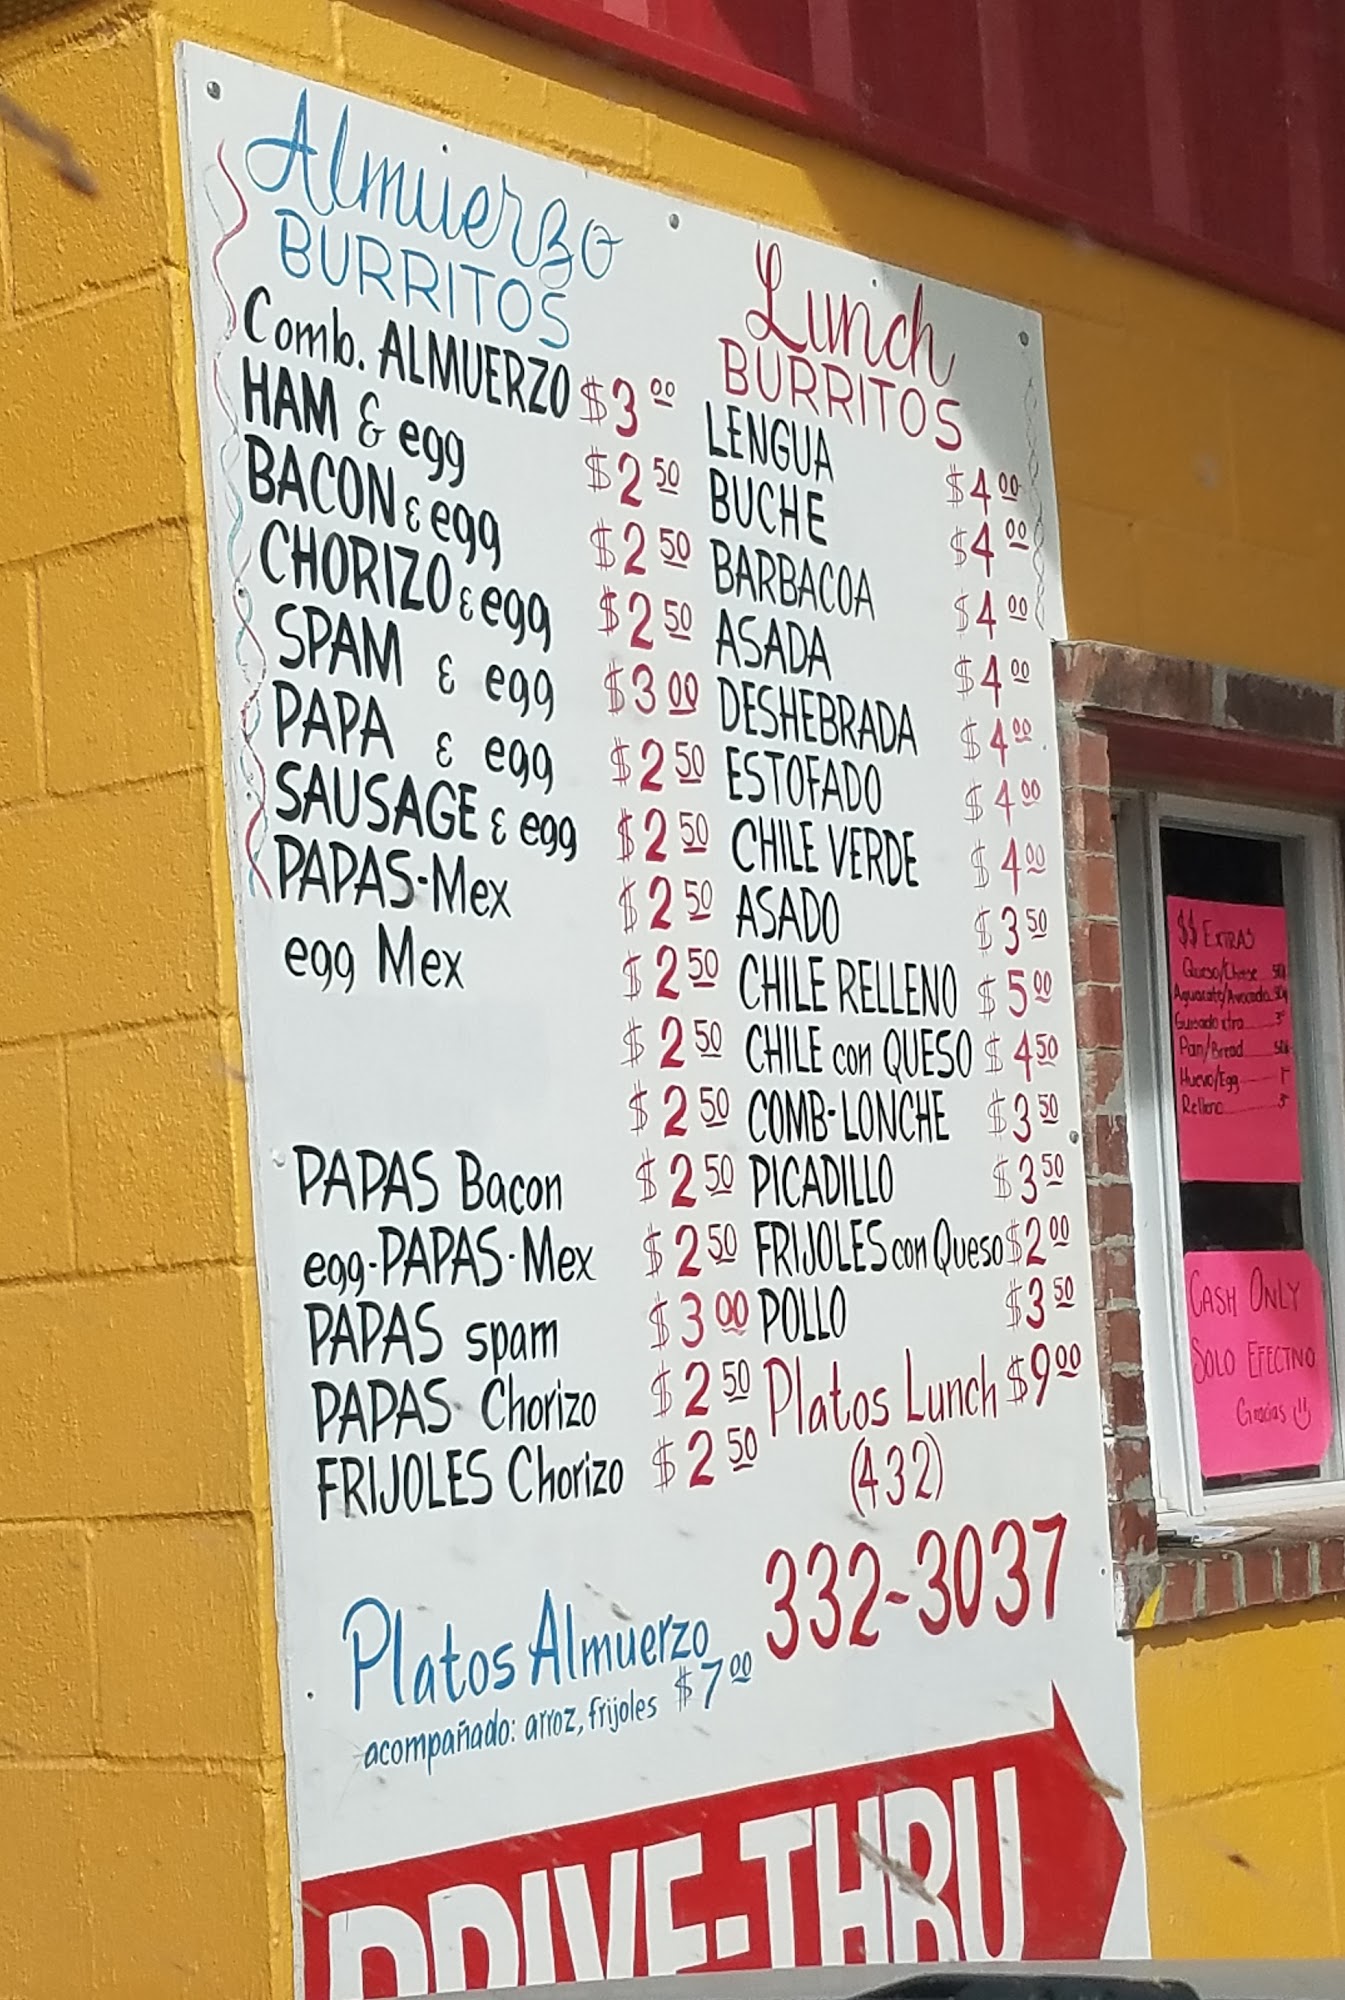 Almuerzo
BURRITOS
Comb. ALMUERZO $3 00
HAM & egg $2 50
BACON & egg $2 50
CHORIZO & egg $2 50
SPAM & egg $3 00
PAPA & egg $2 50
SAUSAGE & egg $2 50
PAPAS-Mex $2 50
egg Mex $2 50
$2 50
$2 50
PAPAS Bacon $2 50
egg-PAPAS-Mex $2 50
PAPAS spam $3 00
PAPAS Chorizo $2 50
FRIJOLES Chorizo $2 50
Platos Almuerzo
acompañado: arroz, frijoles $7 00
Lunch
BURRITOS
LENGUA $4 00
BUCHE $4 00
BARBACOA $4 00
ASADA $4 00
DESHEBRADA $4 00
ESTOFADO $4 00
CHILE VERDE $4 00
ASADO $3 50
CHILE RELLENO $5 00
CHILE con QUESO $4 50
COMB-LONCHE $3 50
PICADILLO $3 50
FRIJOLES con Queso $2 00
POLLO $3 50
Platos Lunch $9 00
(432)
332-3037
DRIVE-THRU
$$ EXTRAS
Queso/Cheese
Aguacate/Avocado
Guisado xtra
Pan/Bread
Huevo/Egg
Relleno
CASH ONLY
SOLO EFECTIVO
Gracias